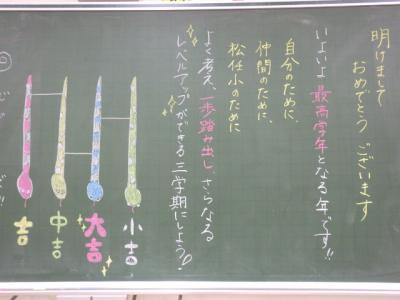 明けまして
おめでとう ございます
いよいよ最高学年となる年です!!
自分のために、
仲間のために、
松任小のために
よく考え、一歩踏み出し、さらなる
レベルアップができる三学期にしよう♪
小吉
大吉
中吉
吉